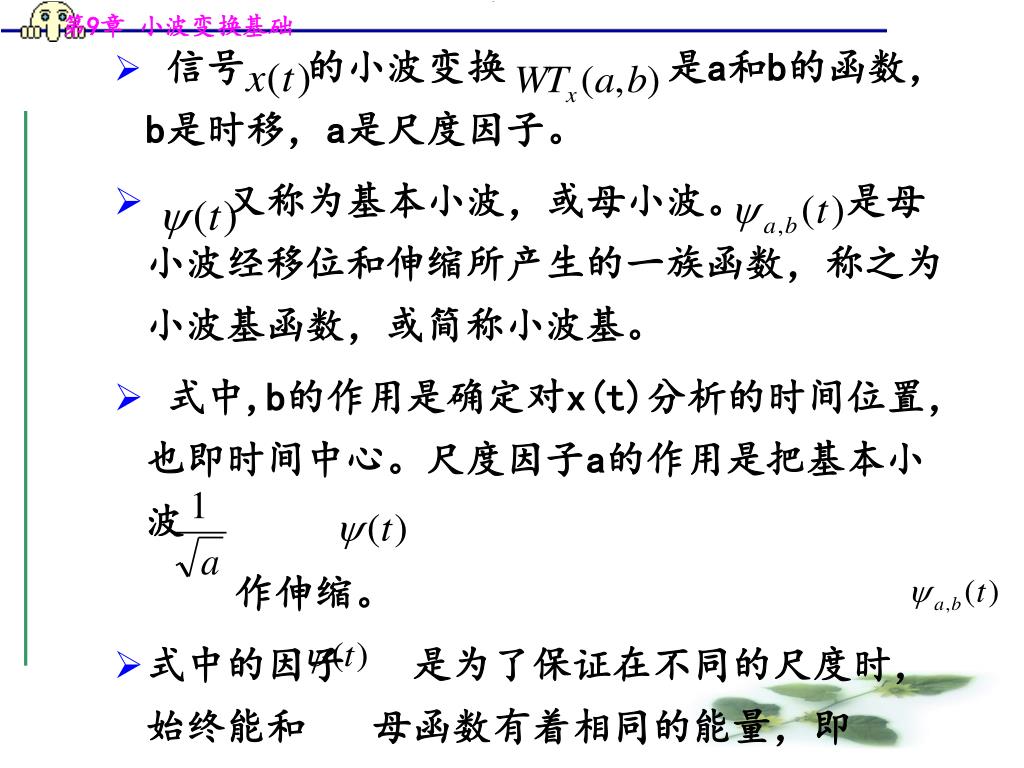 第9章 小波变换基础
➢ 信号 x(t) 的小波变换 WT_x(a,b) 是a和b的函数，
b是时移，a是尺度因子。
➢ ψ(t) 又称为基本小波，或母小波。 ψ_{a,b}(t) 是母
小波经移位和伸缩所产生的一族函数，称之为
小波基函数，或简称小波基。
➢ 式中,b的作用是确定对x(t)分析的时间位置，
也即时间中心。尺度因子a的作用是把基本小
波 1/√a ψ(t)
作伸缩。 ψ_{a,b}(t)
➢ 式中的因子 ψ(t) 是为了保证在不同的尺度时，
始终能和 母函数有着相同的能量，即